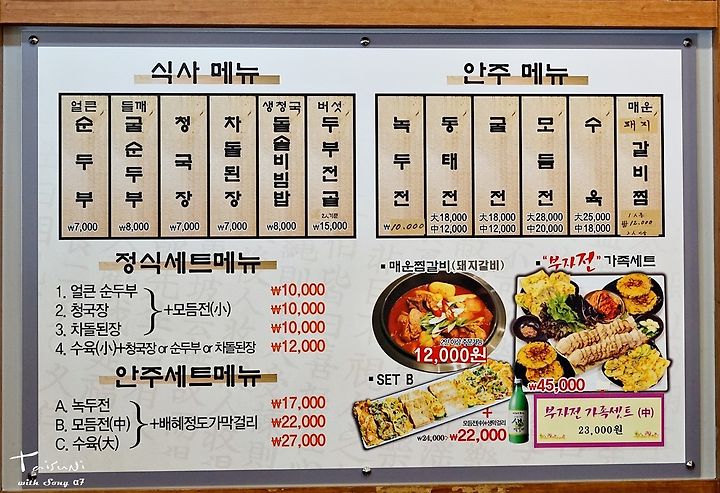 식사 메뉴
얼큰 순두부 ₩7,000
들깨 굴순두부 ₩8,000
청국장 ₩7,000
차돌된장 ₩7,000
생청국 돌솥비빔밥 ₩8,000
버섯 두부전골 2人기준 ₩15,000
안주 메뉴
녹두전 ₩10,000
동태전 大18,000 中12,000
굴전 大18,000 中12,000
모듬전 大28,000 中20,000
수육 大25,000 中18,000
매운 돼지 갈비찜 ₩12,000
정식세트메뉴
1. 얼큰 순두부 ₩10,000
2. 청국장 +모듬전(小) ₩10,000
3. 차돌된장 ₩10,000
4. 수육(小)+청국장 or 순두부 or 차돌된장 ₩12,000
안주세트메뉴
A. 녹두전 ₩17,000
B. 모듬전(中) +배혜정도가막걸리 ₩22,000
C. 수육(大) ₩27,000
▪ 매운찜갈비(돼지갈비)
2인이상 주문가능
12,000원
▪ SET B
모듬전(中)+생막걸리
₩24,000→₩22,000
▪ "부자전" 가족세트
₩45,000
부자전 가족센트 (中)
23,000원
TaiSuNi
with Sony α7